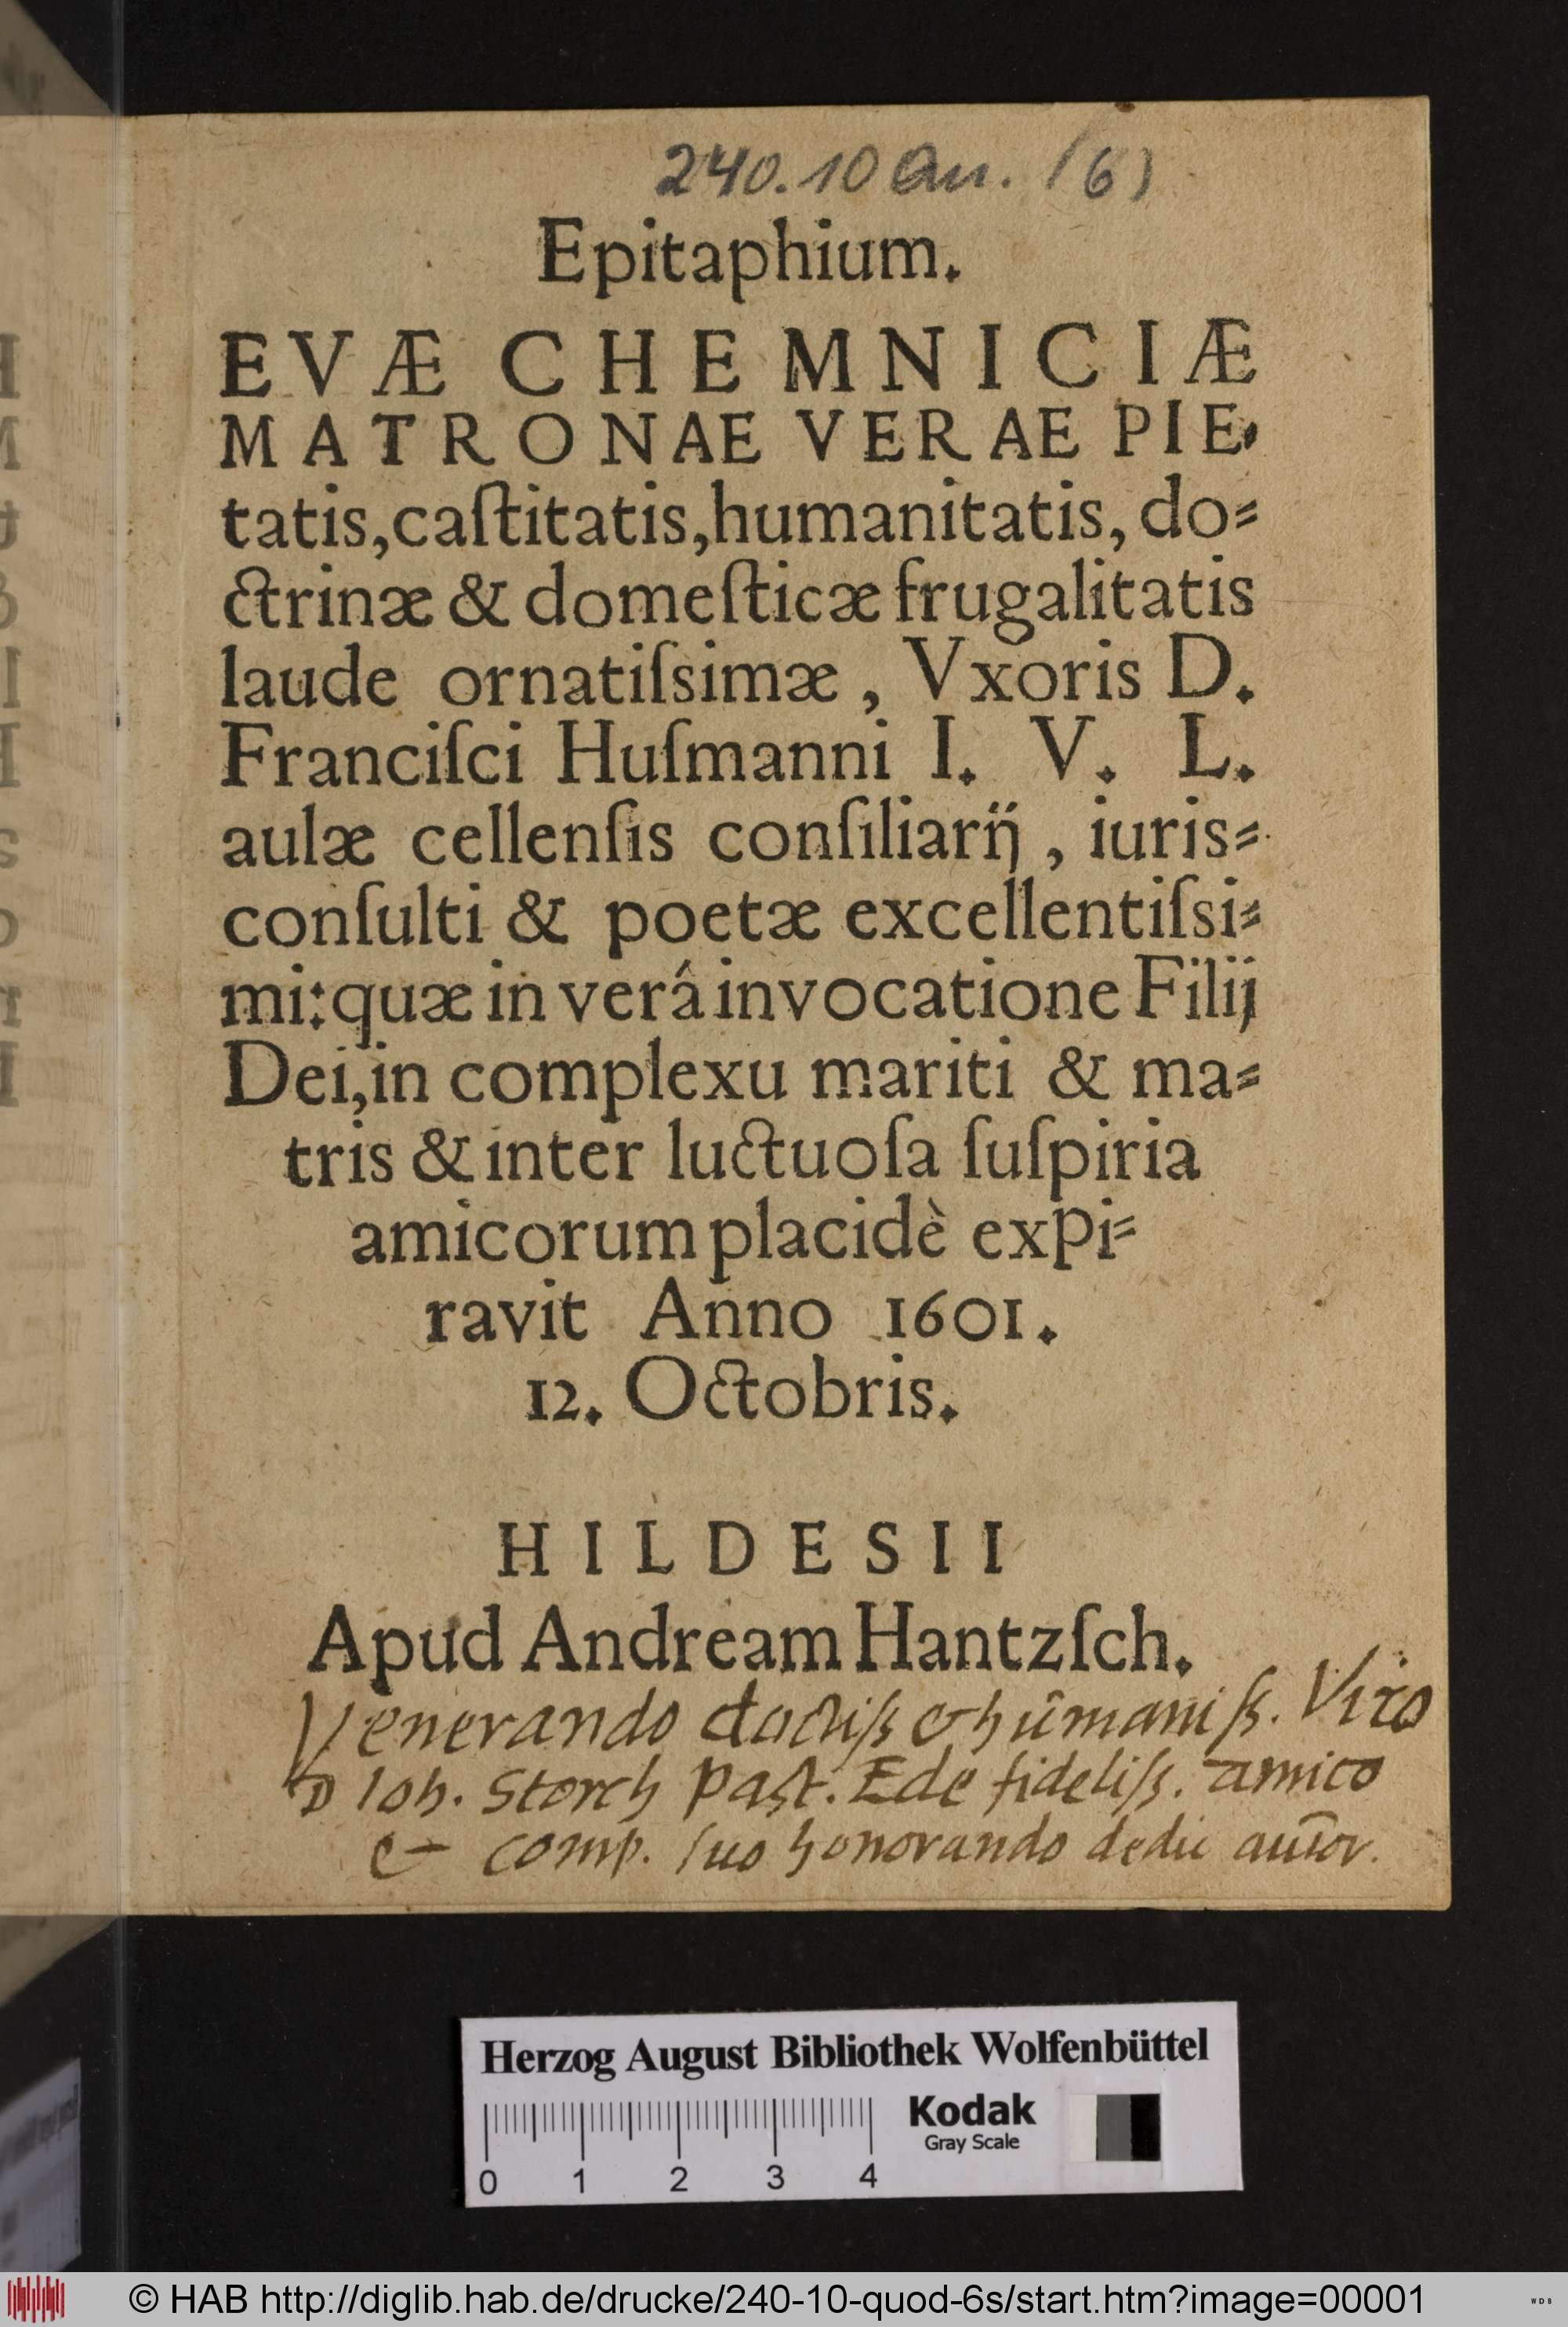 240.10 Qu. (6)
Epitaphium.
EVÆ CHEMNICIÆ
MATRONAE VERAE PIE-
tatis,caſtitatis,humanitatis, do-
ctrinæ & domeſticæ frugalitatis
laude ornatiſsimæ, Vxoris D.
Franciſci Huſmanni I. V. L.
aulæ cellenſis conſiliarij, iuris-
conſulti & poetæ excellentiſsi-
mi: quæ in verá invocatione Filij
Dei, in complexu mariti & ma-
tris & inter luctuoſa ſuſpiria
amicorum placidè expi-
ravit Anno 1601.
12. Octobris.
HILDESII
Apud Andream Hantzſch.
Venerando doctiſs & humaniſs. Viro
D Ioh. Storch Past. Ede fideliſs. amico
& comp. ſuo honorando dedit autor.
Herzog August Bibliothek Wolfenbüttel
Kodak
Gray Scale
0 1 2 3 4
© HAB http://diglib.hab.de/drucke/240-10-quod-6s/start.htm?image=00001
WDB